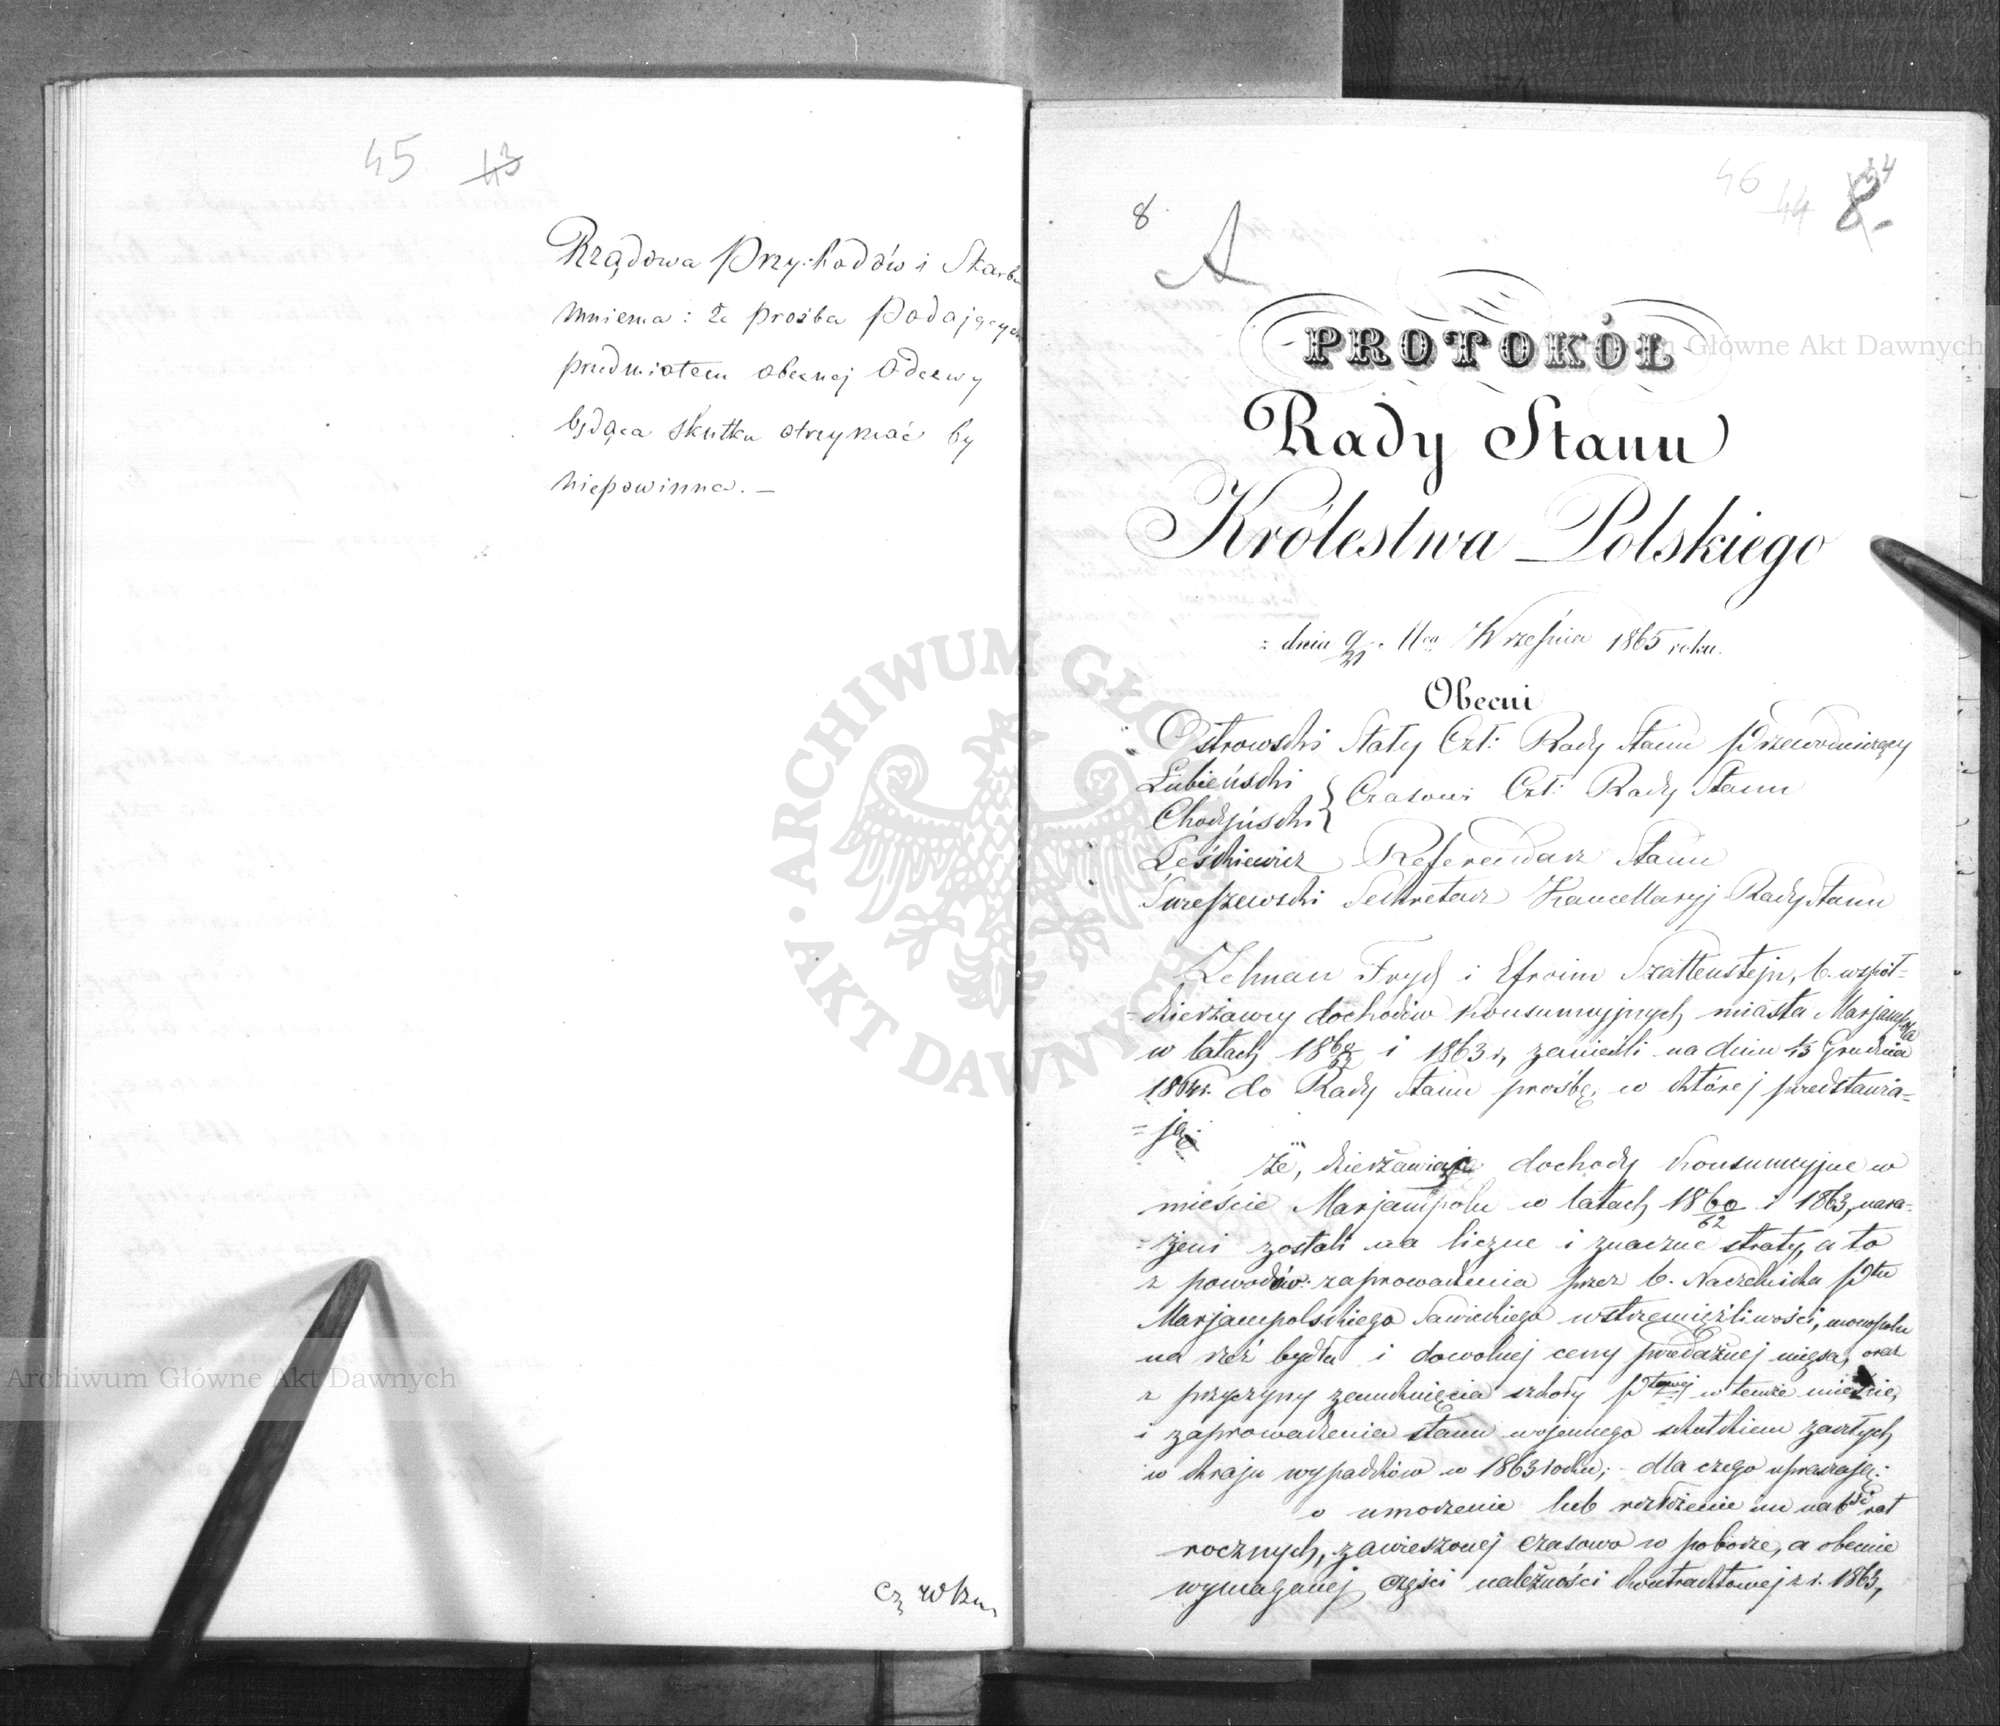 45 43
Rządowa Przychodów i Skarbu
mniema: że prośba Podających
przedmiotem obecnej Odezwy
będąca skutku otrzymać by
niepowinna. —
46 44
8. 8.
A
PROTOKÓŁ
Rady Stanu
Królestwa Polskiego
z dnia 9/21 Września 1865 roku.
Obecni
Ostrowski Stały Czł: Rady Stanu Przewodniczący
Łubieński
Chodyński } Czasowi Czł: Rady Stanu
Leśkiewicz Referendarz Stanu
Sekretarz Kancellaryj Rady Stanu
Zelman Frych i Efroim Szattensztejn, b. współ=
=dzierżawcy dochodów konsumcyjnych miasta Marjampola
w latach 1860/62 i 1863 r, zanieśli na dniu 1/13 Grudnia
1864 r. do Rady Stanu prośbę, w której przedstawia=
=ją:
że, dzierżawiąc dochody konsumcyjne w
mieście Marjampolu w latach 1860/62 i 1863, nara=
=żeni zostali na liczne i znaczne straty, a to
z powodów: zaprowadzenia przez b. Naczelnika Ptu
Marjampolskiego Sawickiego wstrzemięźliwości, monopolu
na rzeź bydła i dowolnej ceny przedażnej mięsa, oraz
z przyczyny zamknięcia szkoły Ptowej w temże mieście,
i zaprowadzenia stanu wojennego skutkiem zaszłych
w kraju wypadków w 1863 roku; - dla czego upraszają:
o umorzenie lub rozłożenie im na 6 rat
rocznych, zawieszonej czasowo w poborze, a obecnie
wymaganej części należności kontraktowej z r. 1863,
Archiwum Główne Akt Dawnych
Archiwum Główne Akt Dawnych
ARCHIWUM GŁÓWNE AKT DAWNYCH